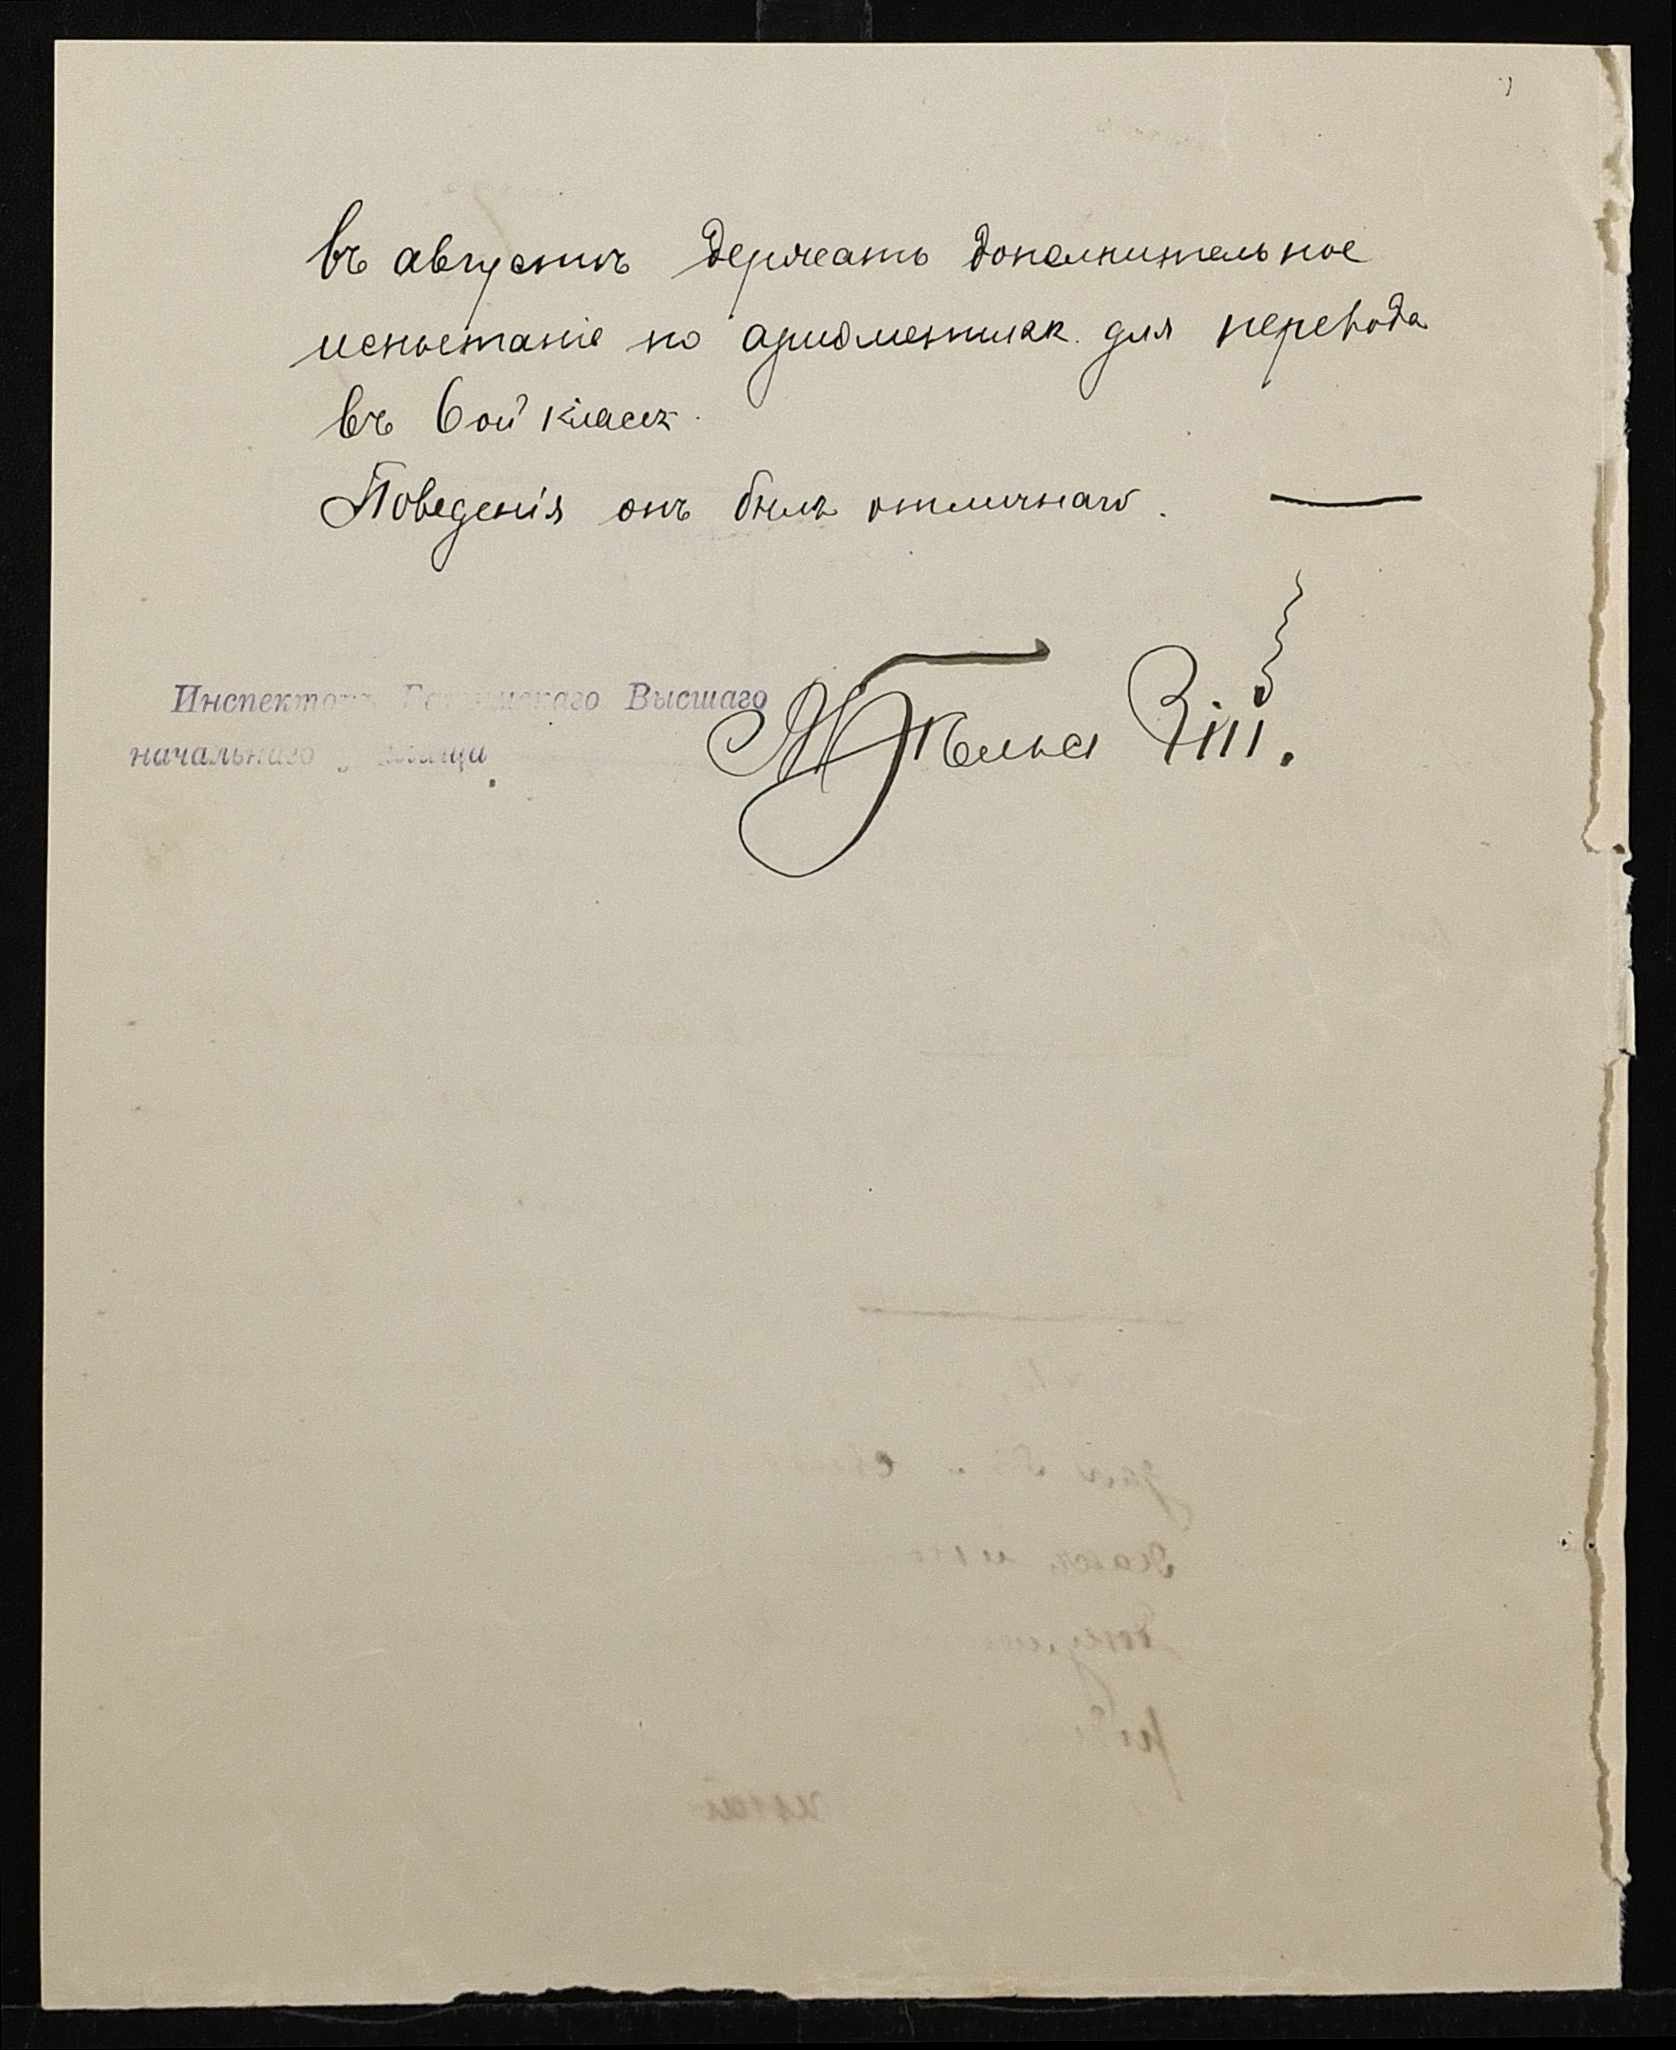 въ августѣ держать дополнительное
испытаніе по ариѳметикѣ для перевода
въ 6ой классъ.
Поведенія онъ былъ отличнаго. —
Инспекторъ Высшаго
начальнаго училища